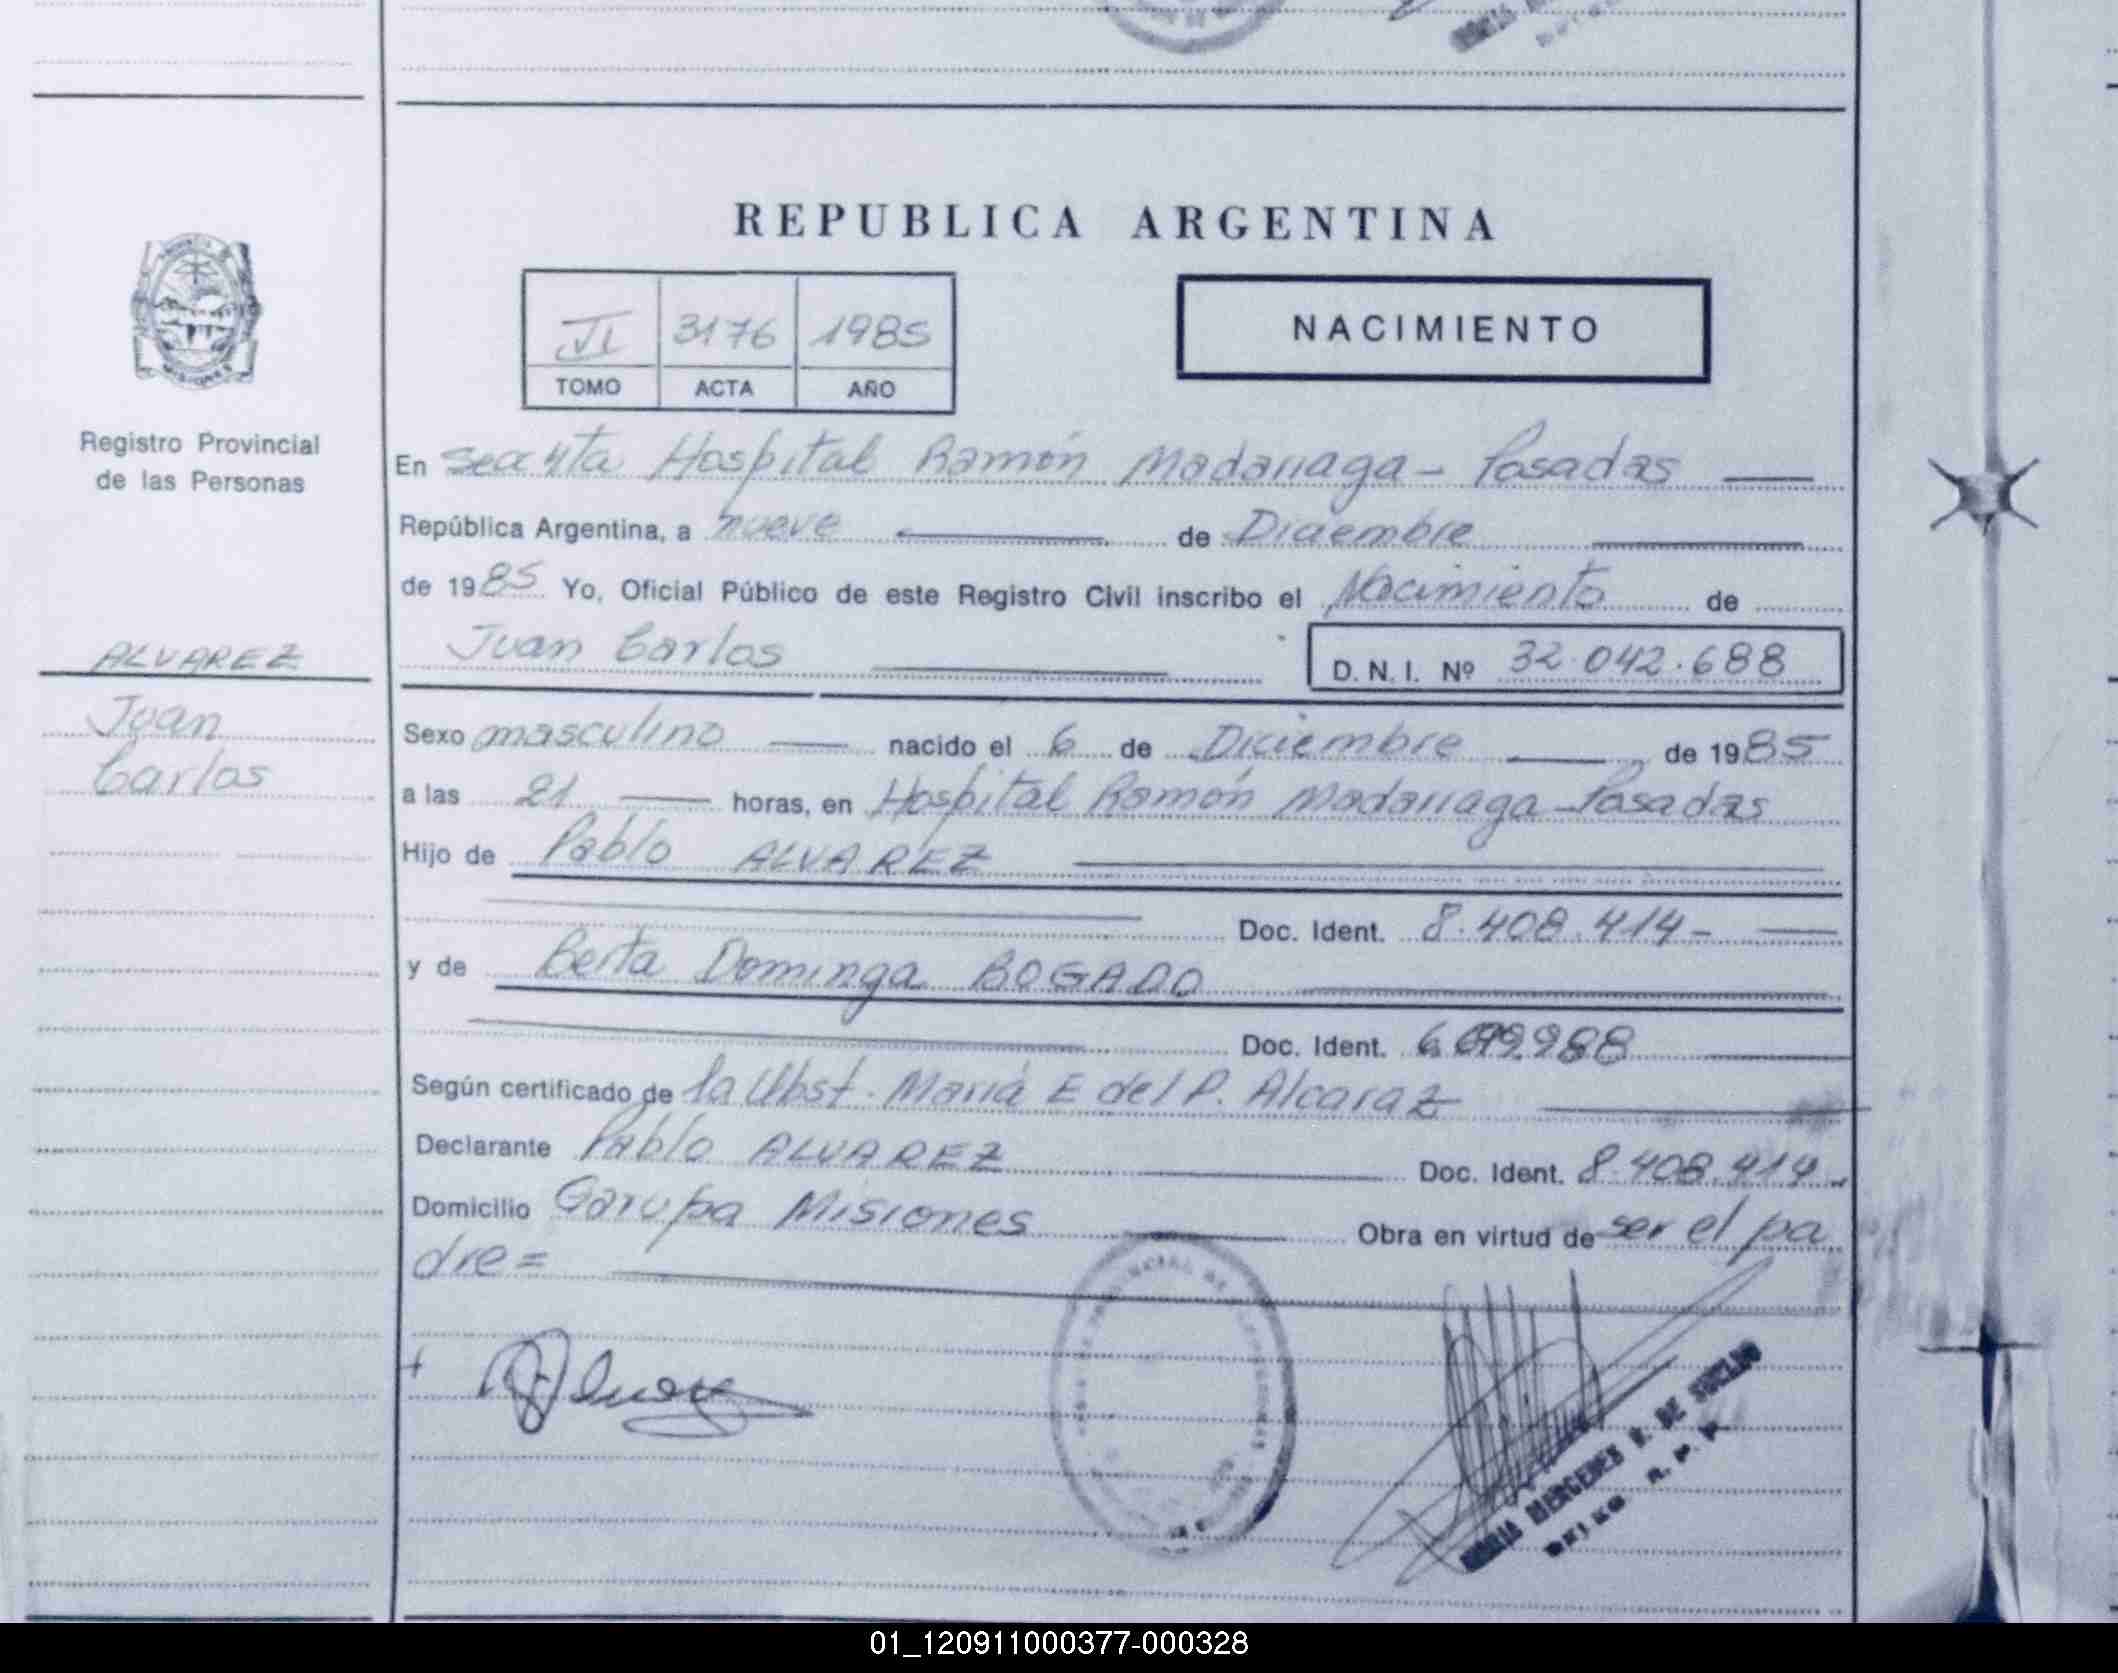 REPUBLICA ARGENTINA
VI 3176 1985
TOMO ACTA AÑO
NACIMIENTO
MISIONES
Registro Provincial
de las Personas
ALVAREZ
Juan
Carlos
En Secc 4ta Hospital Ramón Madariaga - Posadas
República Argentina, a nueve de Diciembre
de 1985 Yo, Oficial Público de este Registro Civil inscribo el Nacimiento de
Juan Carlos D. N. I. Nº 32.042.688
Sexo masculino nacido el 6 de Diciembre de 1985
a las 21 horas, en Hospital Ramón Madariaga - Posadas
Hijo de Pablo ALVAREZ
Doc. Ident. 8.408.414-
y de Berta Dominga BOGADO
Doc. Ident.
Según certificado de la Obst. María E del P. Alcaraz
Declarante Pablo ALVAREZ Doc. Ident. 8.408.414.
Domicilio Garupa Misiones Obra en virtud de ser el pa
dre =
MARIA MERCEDES V. DE
01_120911000377-000328